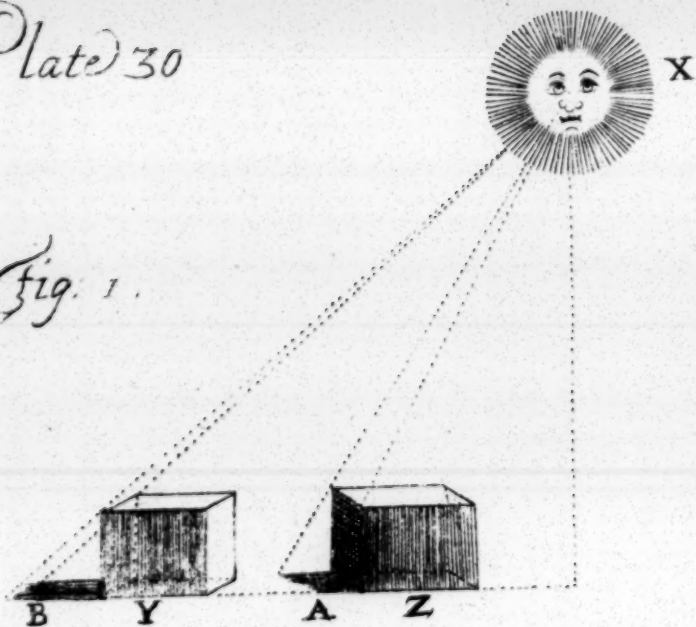 Plate 30
X
fig. 1.
B Y A Z